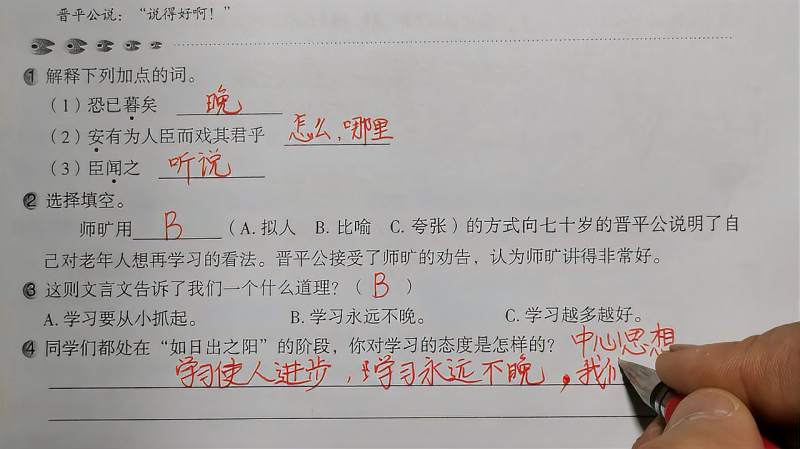 晋平公说：“说得好啊！”
1 解释下列加点的词。
（1）恐已暮矣 晚
（2）安有为人臣而戏其君乎 怎么，哪里
（3）臣闻之 听说
2 选择填空。
师旷用 B （A. 拟人 B. 比喻 C. 夸张）的方式向七十岁的晋平公说明了自
己对老年人想再学习的看法。晋平公接受了师旷的劝告，认为师旷讲得非常好。
3 这则文言文告诉了我们一个什么道理？（ B ）
A. 学习要从小抓起。 B. 学习永远不晚。 C. 学习越多越好。
4 同学们都处在“如日出之阳”的阶段，你对学习的态度是怎样的？ 中心思想
学习使人进步，学习永远不晚，我们